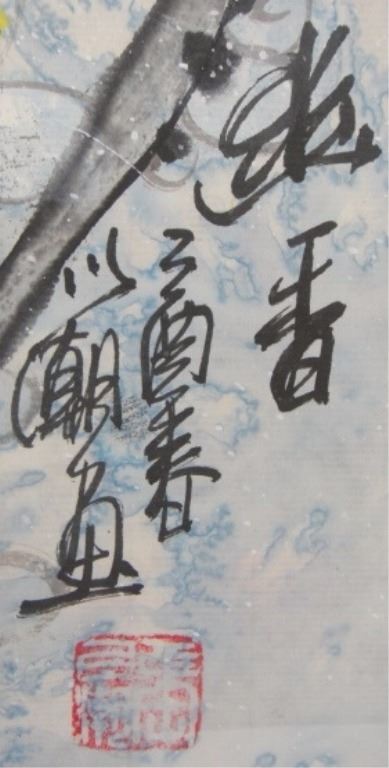 幽香
乙酉春
以潮画